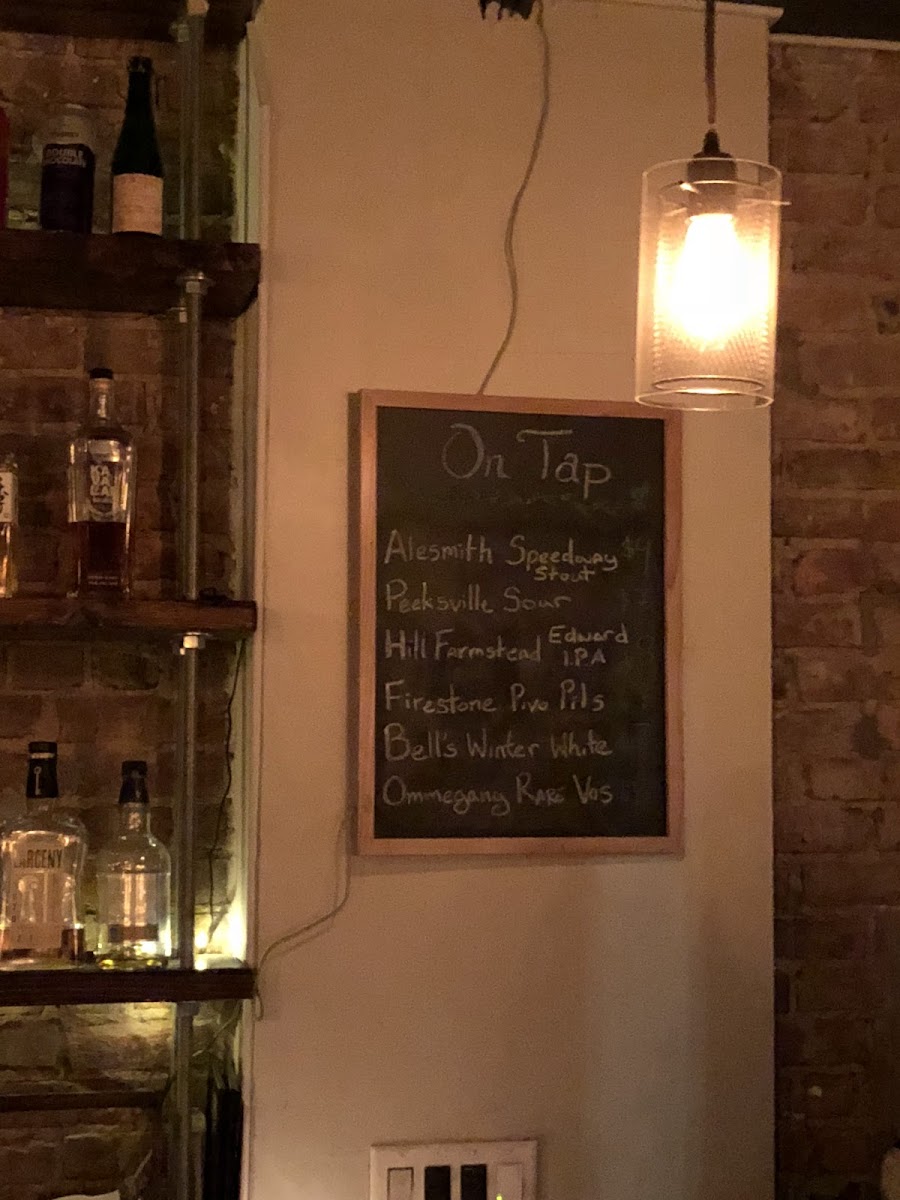 On Tap
Alesmith Speedway
Stout
Peeksville Sour
Hill Farmstead Edward
I.P.A
Firestone Pivo Pils
Bell's Winter White
Ommegang Rare Vos
DOUBLE
CHOCOLATE
LARCENY